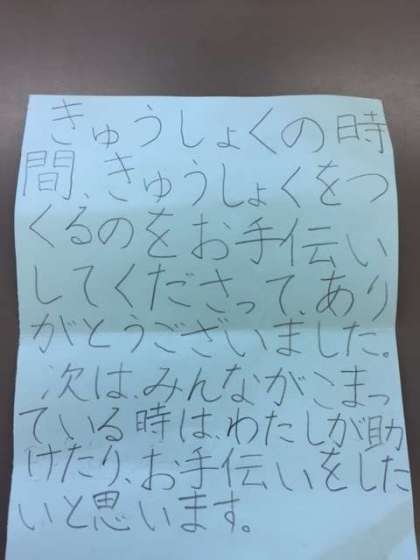 きゅうしょくの時
間、きゅうしょくをつ
くるのをお手伝い
してくださって、あり
がとうございました。
次は、みんながこまっ
ている時は、わたしが助
けたり、お手伝いをした
いと思います。